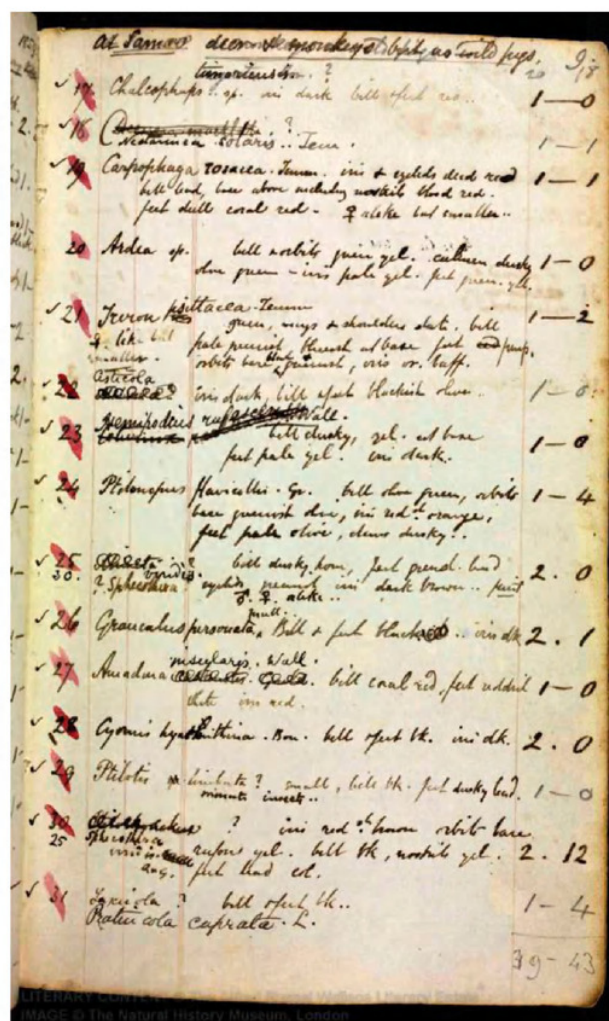 At Samao deer & monkeys wild pigs.
timorlensis. ?
17 Chalcophaps.. sp. iris dark bill & feet red.. 1—0
18 ?
Nectarinea solaris.. Tem. 1—1
19 Carpophaga rosacea. Temm. iris & eyelids deep red 1—1
bill lead, base above including nostrils blood red.
feet dull coral red. ♀ alike but smaller..
20 Ardea sp. bill & orbits green yel. culmen dusky 1—0
olive green – iris pale yel. feet green yell.
21 Treron psittacea. Temm 1—2
green, wings & shoulders slate. bill
♀ like but pale greenish, bluish at base feet purp.
smaller. orbits bare greenish, iris or. buff.
22 Cisticola iris dark, bill & feet blackish olive.. 1—0
23 Hemipodius rufescens Wall.
bill dusky, yel. at base 1—0
feet pale yel. iris dark.
24 Ptilonopus flavicollis. Gr. bill olive green, orbits 1—4
bare greenish olive, iris red sh. orange,
feet pale olive, claws dusky..
25 ? bill dusky horn, feet greed. lead 2. 0
30. viridis.
? Sphecothera eyelids greenish iris dark brown.. fruit
♂. ♀. alike..
26 Graucalus personata, Mull.. Bill & feet black.. iris dk 2. 1
27 Amadina insularis. Wall. bill coral red, feet reddish 1—0
iris red.
28 Cyornis hyacinthina. Bon. bill & feet bk. iris dk. 2. 0
29 Ptilotis limbata? small, bill bk. feet dusky lead. 1—0
minute insects..
30 ? iris red sh. brown orbits bare
25 Sphecothera
viridis rufous yel. bill bk, nostrils yel. 2. 12
feet lead col.
31 Saxicola ? bill & feet bk.. 1—4
Pratincola caprata. L.
39–43
IMAGE © The Natural History Museum, London